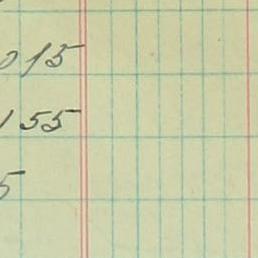 015
155
5